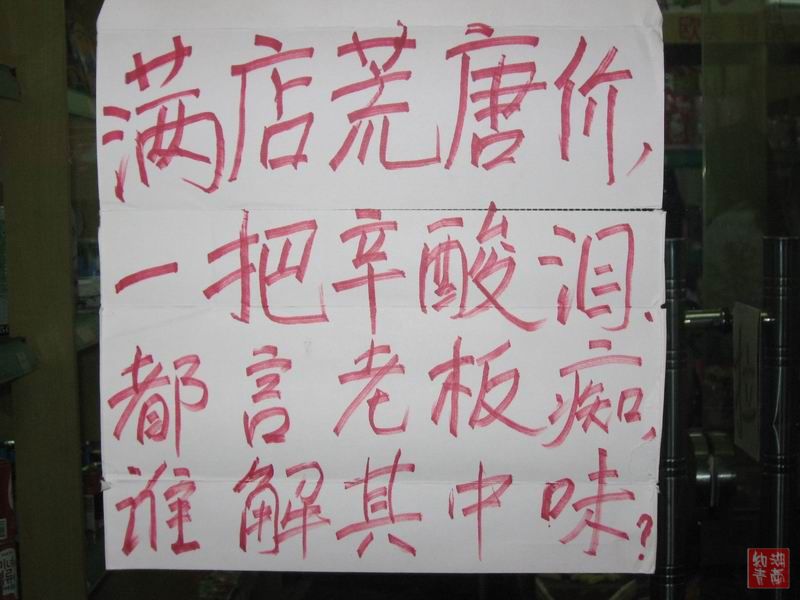 满店荒唐价,
一把辛酸泪.
都言老板痴,
谁解其中味?
湖南
知青